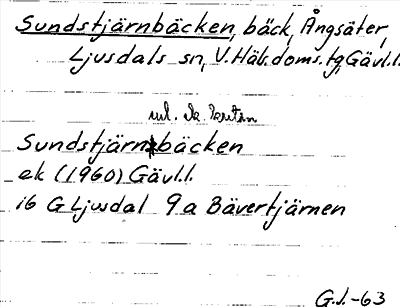 Sundstjärnbäcken, bäck, Ångsäter,
Ljusdals sn, V. Häls. doms. tg, Gävl.l.
enl. ek. kartan
Sundstjärnbäcken
ek (1960) Gävl.l.
16 G Ljusdal 9a Bävertjärnen
G.J.-63